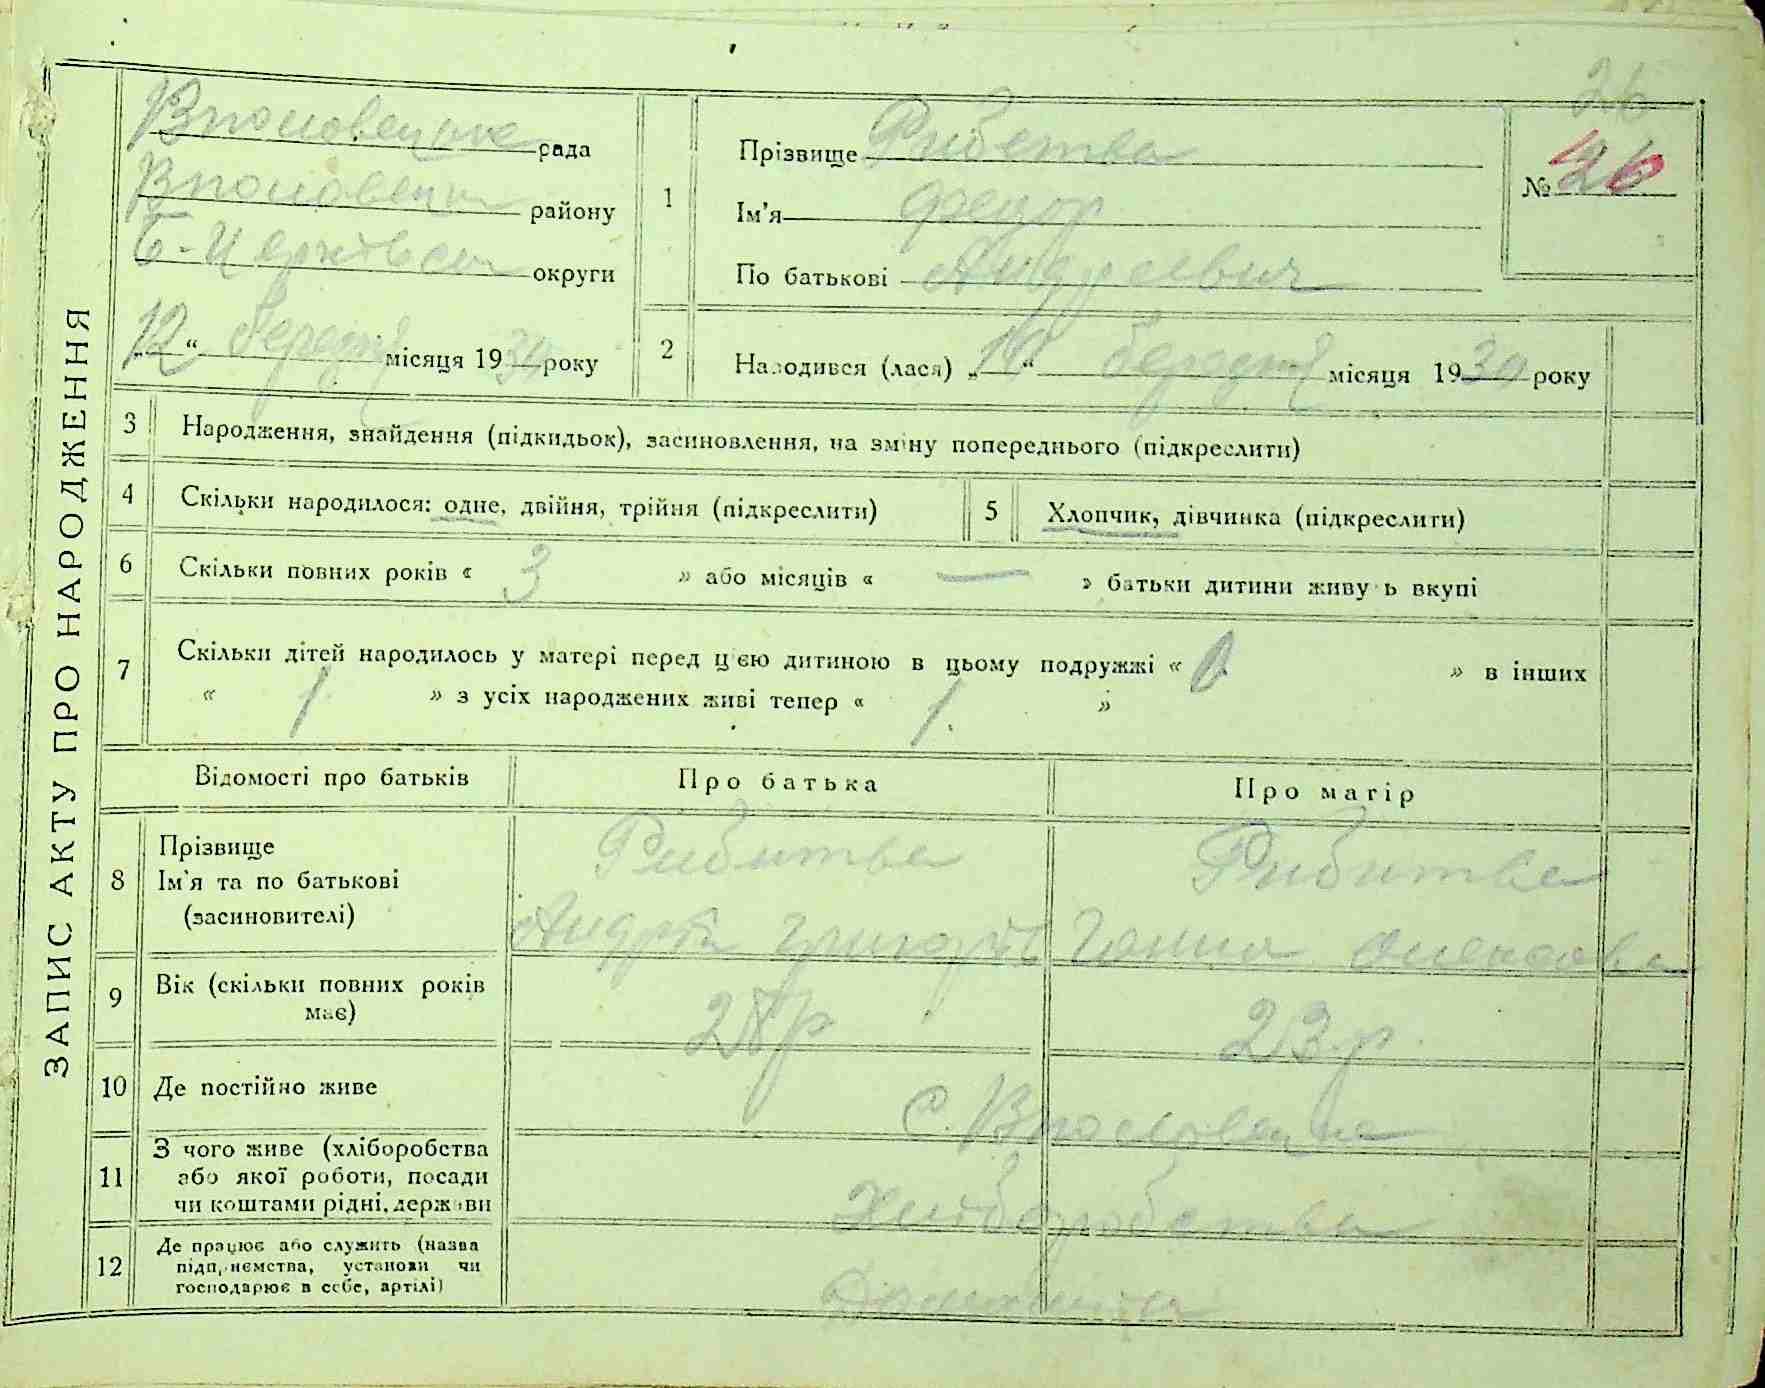 26
ЗАПИС АКТУ ПРО НАРОДЖЕННЯ
рада
району
Б-Церківськ округи
„12“ березня місяця 1930 року
1
Прізвище
Ім'я Федор
По батькові Андреевич
№ 26
2
Народився (лася) „10“ березня місяця 1930 року
3 Народження, знайдення (підкидьок), засиновлення, на зміну попереднього (підкреслити)
4 Скільки народилося: одне, двійня, трійня (підкреслити)
5 Хлопчик, дівчинка (підкреслити)
6 Скільки повних років « 3 » або місяців « — » батьки дитини живуть вкупі
7 Скільки дітей народилось у матері перед цією дитиною в цьому подружжі « 0 » в інших
« 1 » з усіх народжених живі тепер « 1. »
Відомості про батьків
Про батька
Про матір
8
Прізвище
Ім'я та по батькові
(засиновителі)
Рибитва
Рибитва
Андрій Григор
Ганна
9
Вік (скільки повних років
має)
23 р.
10 Де постійно живе
с.
11
З чого живе (хліборобства
або якої роботи, посади
чи коштами рідні, держави
Хліборобства
12
Де працює або служить (назва
підприємства, установи чи
господарює в себе, артілі)